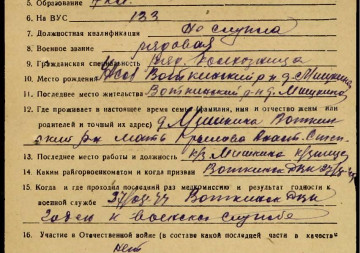 5. Образование 7 кл.
6. На ВУС 133
7. Должностная квалификация
8. Военное звание рядовая
9. Гражданская специальность колхозница
10. Место рождения УАССР Воткинский р-н д. Мишкина
11. Последнее место жительства Воткинский р-н д. Мишкина
12. Где проживает в настоящее время семья (фамилия, имя и отчество жены или
родителя и точный их адрес) д. Мишкина Воткин
ский р-н мать
13. Последнее место работы и должность к/з Мишкино
14. Каким райгорвоенкоматом и когда призван Воткинским
15. Когда и где проходил последний раз медкомиссию и результат годности к
военной службе Воткинским
Годен к воинской службе
16. Участие в Отечественной войне (в составе какой последней части в качестве
нет